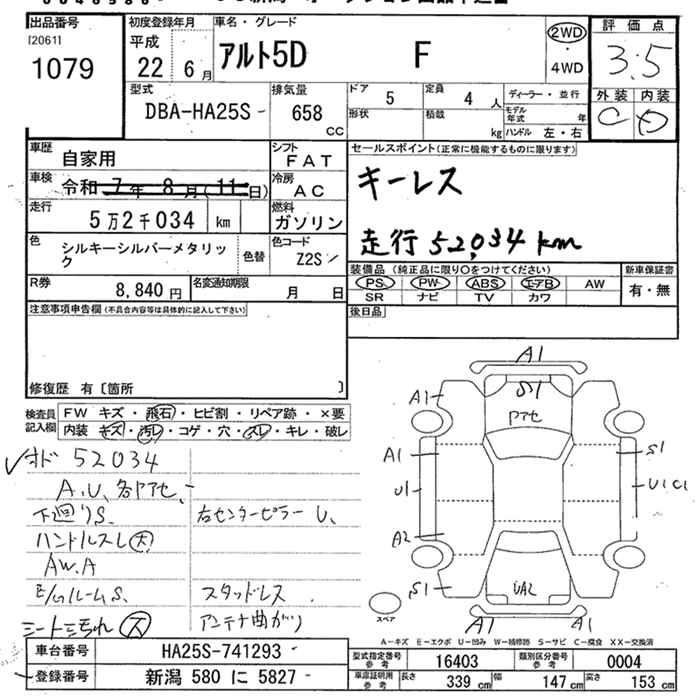 出品番号
[20611
1079
初度登録年月
平成
22 6 月
車名・グレード
アルト5D F
2WD
・
4WD
評価点
3.5
外装 内装
C D
型式
DBA-HA25S
排気量
658
CC
ドア
5
定員
4 人
形状
積載
kg
ディーラー・並行
モデル年式 年
ハンドル 左・右
車歴
自家用
シフト
FAT
車検
令和 7年 8月(11日)
冷房
AC
走行
5万2千034 km
燃料
ガソリン
色
シルキーシルバーメタリック
色替
色コード
Z2S
R券
8,840 円
名変通知期限
月 日
セールスポイント(正常に機能するものに限ります)
キーレス
走行 52,034 km
装備品 (純正品に限り○をつけてください)
PS PW ABS エアB AW
SR ナビ TV カワ
新車保証書
有・無
後日品
注意事項申告欄(不具合内容等は具体的に記入して下さい)
修復歴 有〔箇所 〕
検査員記入欄
FW キズ・飛石・ヒビ割・リペア跡・×要
内装 キズ・汚レ・コゲ・穴・スレ・キレ・破レ
52034
A.U、各アセ、
下廻りS.
右センターピラー U、
ハンドルスレ大
AW.A
E/gルームS.
スタッドレス
アンテナ曲がり
A1
A1
S1
アセ
A1
S1
U1
U1 C1
A2
S1
UA2
A1
A1
スペア
A-キズ E-エクボ U-凹み W-補修跡 S-サビ C-腐食 XX-交換済
車台番号
HA25S-741293
登録番号
新潟 580 に 5827
型式指定番号
参考
16403
類別区分番号
参考
0004
車庫証明用
参考
長さ 339 cm 幅 147 cm 高さ 153 cm